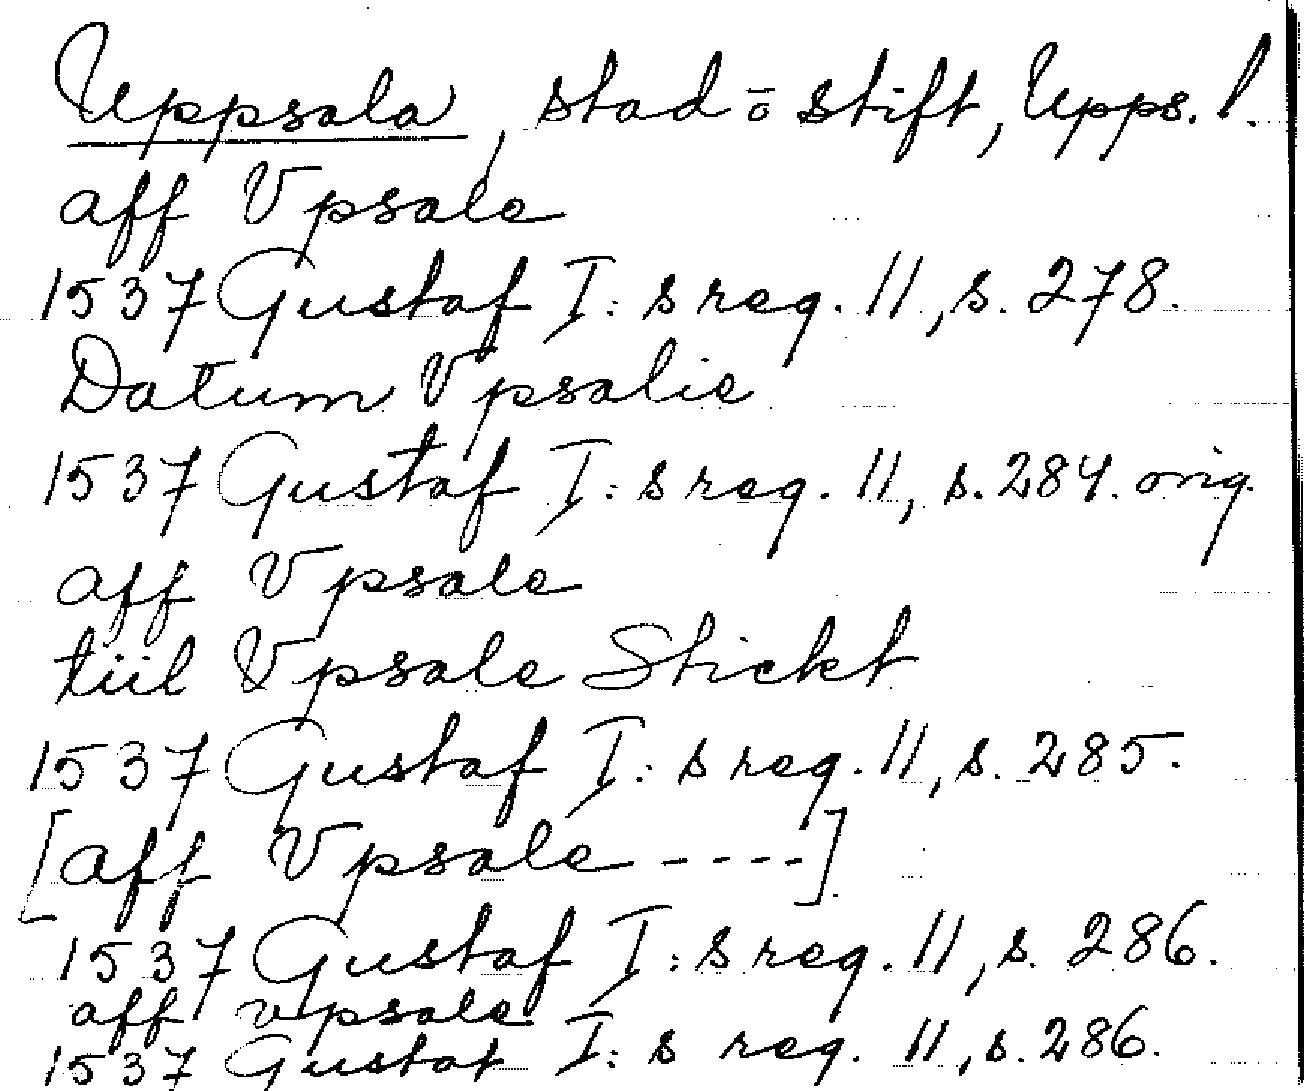 Uppsala, stad o stift, Upps. l.
aff Vpsale
1537 Gustaf I:s reg. 11, s. 278.
Datum Vpsalie
1537 Gustaf I:s reg. 11, s. 284. orig.
aff Vpsale
tiil Vpsale Stickt
1537 Gustaf I:s reg. 11, s. 285.
[aff Vpsale ----]
1537 Gustaf I:s reg. 11, s. 286.
aff vpsale
1537 Gustaf I:s reg. 11, s. 286.